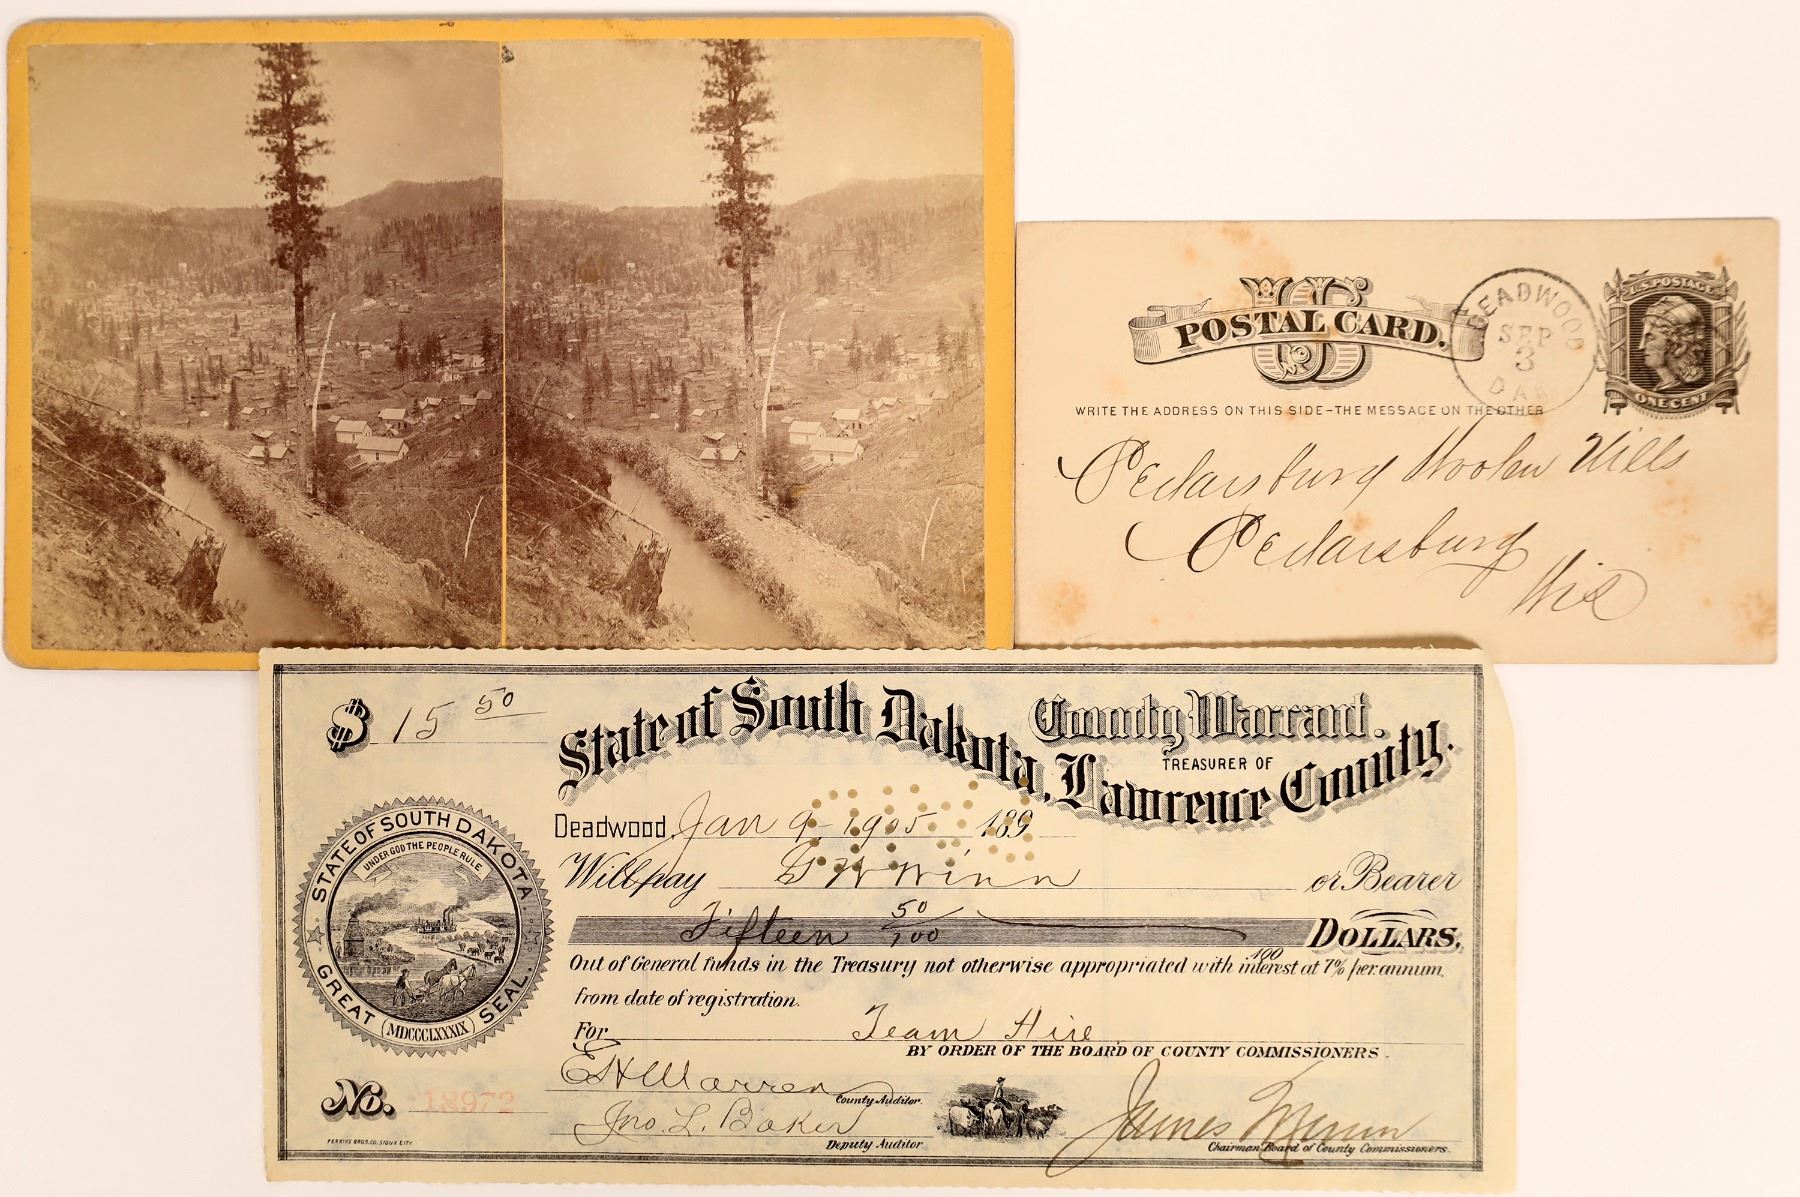 US
POSTAL CARD.
WRITE THE ADDRESS ON THIS SIDE - THE MESSAGE ON THE OTHER
DEADWOOD
SEP
3
DAK
U.S. POSTAGE
ONE CENT
Cedarsburg Woolen Mills
Cedarsburg
Wis
$ 15 50
State of South Dakota,
County Warrant.
TREASURER OF
Lawrence County.
Deadwood, Jan 9 1905 189
Will pay G W Winn or Bearer
Fifteen 50/100 DOLLARS.
100
Out of General funds in the Treasury not otherwise appropriated with interest at 7% per annum.
from date of registration.
For Team Hire
BY ORDER OF THE BOARD OF COUNTY COMMISSIONERS.
STATE OF SOUTH DAKOTA.
UNDER GOD THE PEOPLE RULE
GREAT SEAL.
MDCCCLXXXIX
No. 18972
E H Warren
County Auditor.
Jno. L. Baker
Deputy Auditor
James
Chairman Board of County Commissioners.
PERKINS BROS. CO. SIOUX CITY.